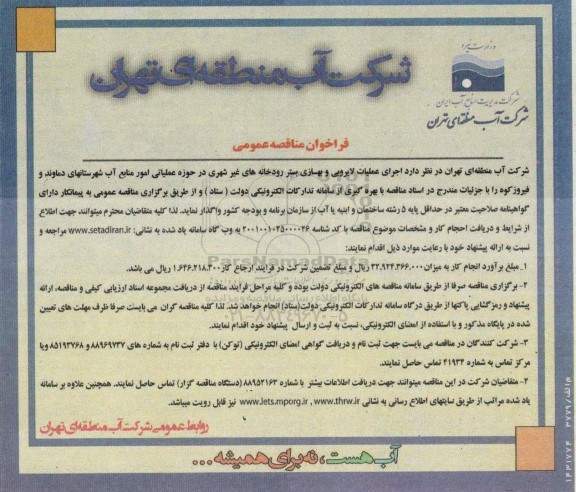 وزارت نیرو
شرکت مدیریت منابع آب ایران
شرکت آب منطقه‌ای تهران
شرکت آب منطقه‌ای تهران
فراخوان مناقصه عمومی
شرکت آب منطقه‌ای تهران در نظر دارد اجرای عملیات لایروبی و بهسازی بستر رودخانه های غیر شهری در حوزه عملیاتی امور منابع آب شهرستانهای دماوند و
فیروزکوه را با جزئیات مندرج در اسناد مناقصه با بهره گیری از سامانه تدارکات الکترونیکی دولت ( ستاد ) و از طریق برگزاری مناقصه عمومی به پیمانکار دارای
گواهینامه صلاحیت معتبر در حداقل پایه ۵ رشته ساختمان و ابنیه یا آب از سازمان برنامه و بودجه کشور واگذار نماید. لذا کلیه متقاضیان محترم میتوانند جهت اطلاع
از شرایط و دریافت احجام کار و مشخصات موضوع مناقصه با کد شناسه ۲۰۰۱۰۰۱۰۲۵۰۰۰۰۲۶ به وب گاه سامانه یاد شده به نشانی: www.setadiran.ir مراجعه و
نسبت به ارائه پیشنهاد خود با رعایت موارد ذیل اقدام نمایند:
۱_ مبلغ برآورد انجام کار به میزان ۳۲.۹۲۴.۳۶۶.۰۰۰ ریال و مبلغ تضمین شرکت در فرایند ارجاع کار ۱.۶۴۶.۲۱۸.۳۰۰ ریال می باشد.
۲- برگزاری مناقصه صرفا از طریق سامانه مناقصه های الکترونیکی دولت بوده و کلیه مراحل فرآیند مناقصه از دریافت مجموعه اسناد ارزیابی کیفی و مناقصه، ارائه
پیشنهاد و رمزگشایی پاکتها از طریق درگاه سامانه تدارکات الکترونیکی دولت(ستاد) انجام خواهد شد. لذا کلیه مناقصه گران می بایست صرفا ظرف مهلت های تعیین
شده در پایگاه مذکور و با استفاده از امضای الکترونیکی، نسبت به ثبت و ارسال پیشنهاد خود اقدام نمایند.
۳- شرکت کنندگان در مناقصه می بایست جهت ثبت نام و دریافت گواهی امضای الکترونیکی (توکن) با دفتر ثبت نام به شماره های ۸۸۹۶۹۷۳۷ و ۸۵۱۹۳۷۶۸ ویا
مرکز تماس به شماره ۴۱۹۳۴ تماس حاصل نمایند.
۴- متقاضیان شرکت در این مناقصه میتوانند جهت دریافت اطلاعات بیشتر با شماره ۸۸۹۵۲۱۶۳ (دستگاه مناقصه گزار) تماس حاصل نمایند. همچنین علاوه بر سامانه
یاد شده مراتب از طریق سایتهای اطلاع رسانی به نشانی www.thrw.ir , www.Iets.mporg.ir نیز قابل رویت میباشد.
روابط عمومی شرکت آب منطقه‌ای تهران
آب هست، نه برای همیشه ...
ParsNamadData
۰۲۱-۸۸۳۴۹۶۷۰-۵
م الف/۳۷۷۹
۱۴۳۱۷۷۴